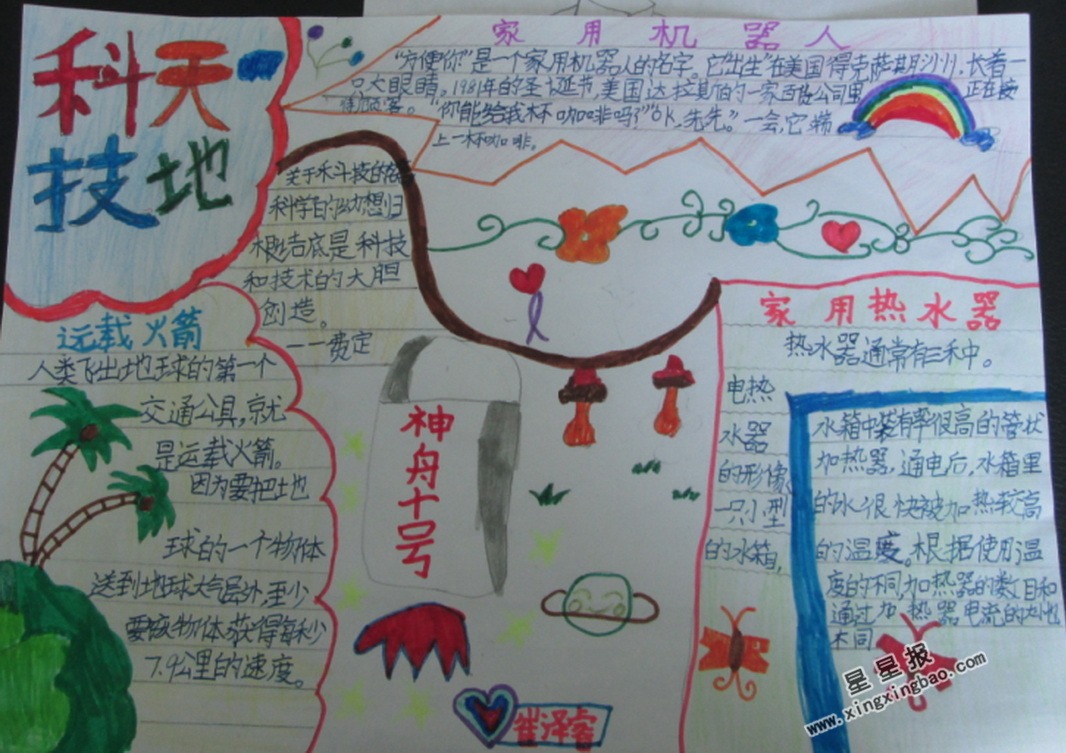 科天
技地
家用机器人
"方便你"是一个家用机器人的名字。它"出生"在美国得克萨其州,长着一
只大眼睛。1981年的圣飞诞节,美国达拉斯的一家百货公司里,正在接
待顾客。"你能给我杯咖啡吗?""OK,先先。"一会,它端
上一杯咖啡。
关于科技的
科学的幼想归
根结底是科技
和技术的大胆
创造。
——费定
运载火箭
人类飞出地球的第一个
交通公具,就
是运载火箭。
因为要把地
球的一个物体
送到地球大气层外,至少
要该物体获得每秒
7.9公里的速度。
神舟十号
崔泽睿
家用热水器
热水器通常有三种。
电热
水器
的形像
一只小型
的水箱,
水箱中装有率很高的管状
加热器,通电后,水箱里
的水很快被加热较高
的温度。根据使用温
度的不同,加热器的数目和
通过加热器电流的也
不同
星星报
www.xingxingbao.com